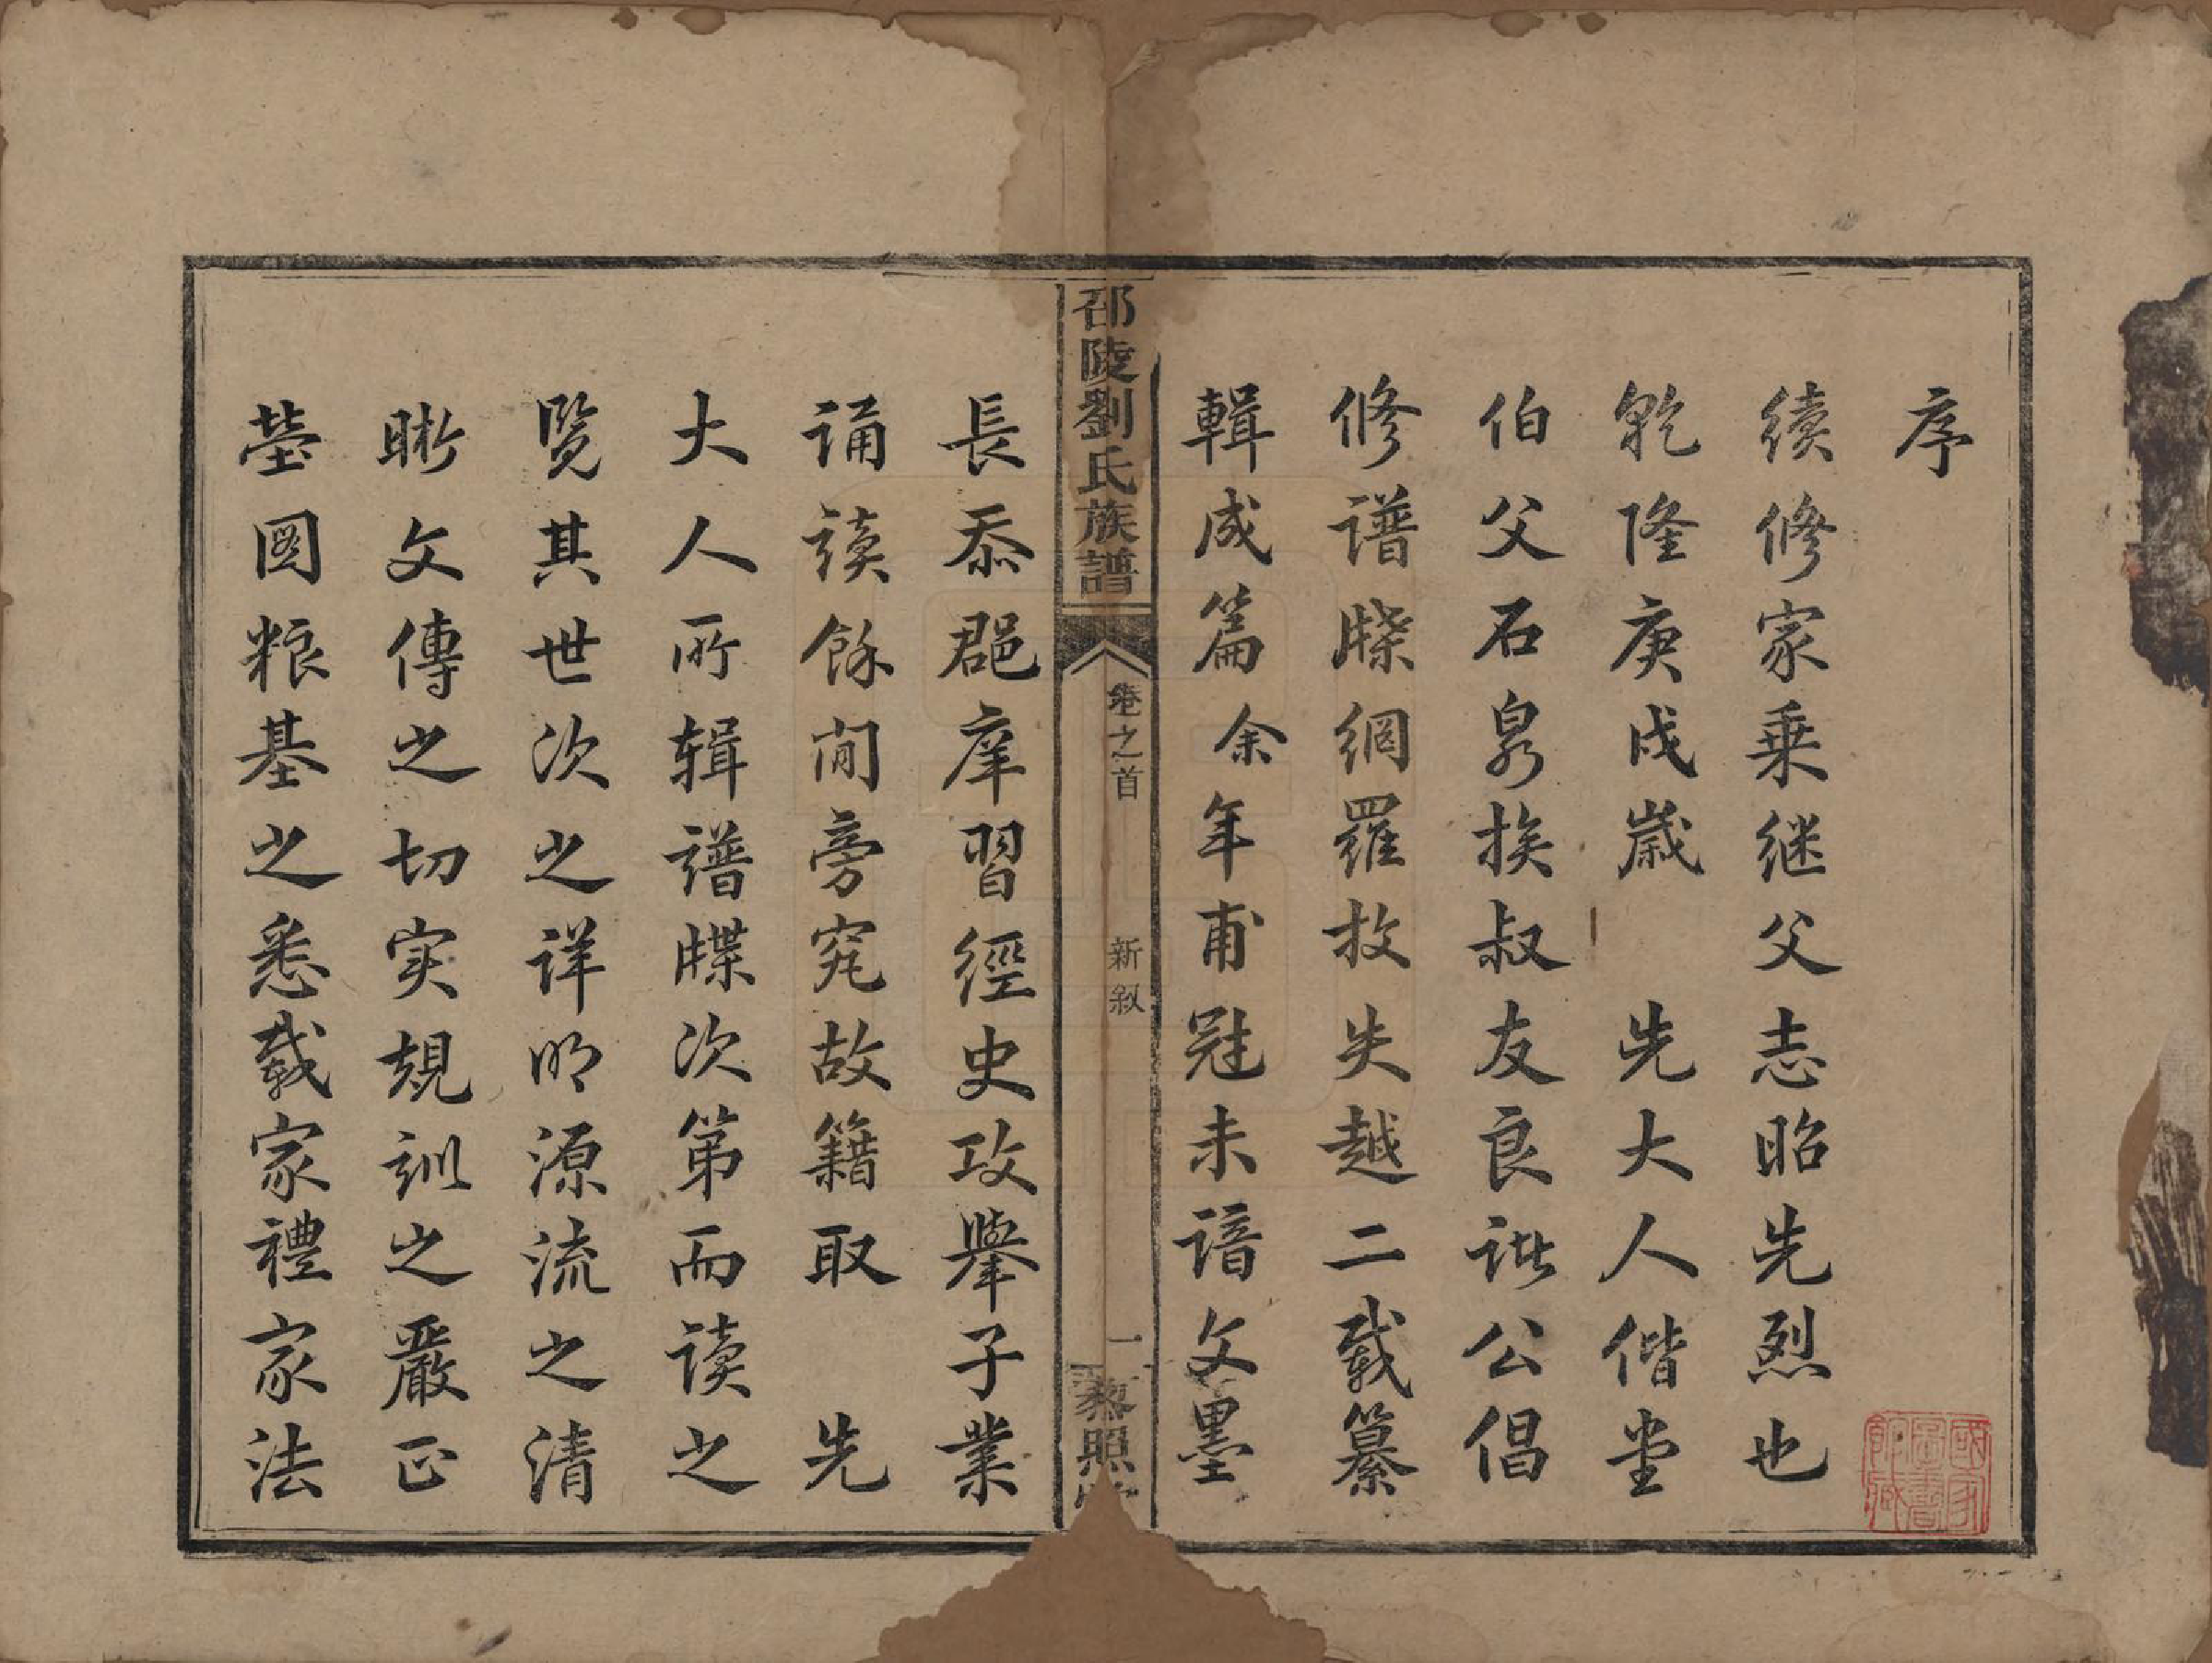 序
續修家乗継父志昭先烈也
乾隆庚戌歲　先大人偕堂
伯父石泉挨叔友良諾公倡
修谱牒網羅放失越二载纂
輯成篇余年甫冠未谙文墨
邵陵劉氏族譜
卷之首
新叙
一
黎照堂
長忝郡庠習經史攻舉子業
诵读餘间旁究故籍取　先
大人所辑譜牒次第而读之
覧其世次之详明源流之清
晰文傳之切实規训之嚴正
塋図粮基之悉载家禮家法
國家圖書館藏